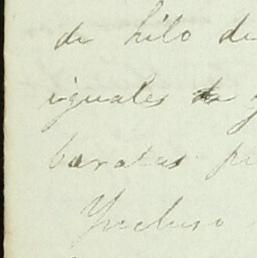 de hilo de
iguales
baratas
Yncluso